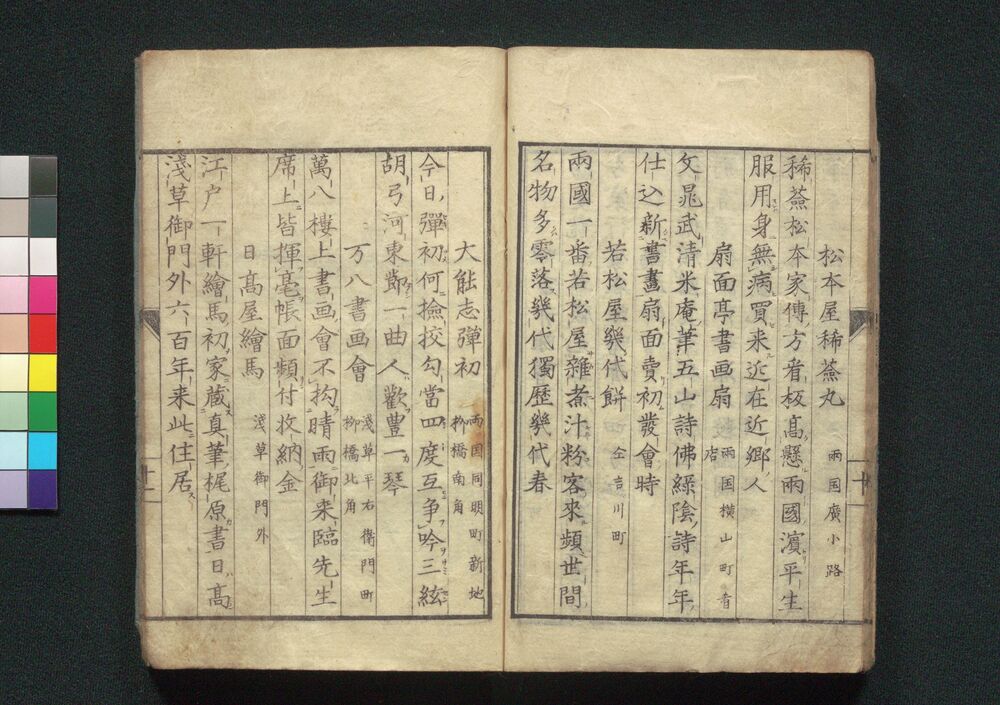 松本屋稀薟丸 兩国廣小路
稀薟松本家傳方看板高懸兩國濵平生
服用身無病買来近在近郷人
扇面亭書画扇 兩国横山町
文晁武清米庵筆五山詩佛緑陰詩年年
仕込新書畫扇面賣初發會時
若松屋幾代餅 仝吉川町
兩國一番若松屋雜煮汁粉客來頻世間
名物多零落幾代獨歴幾代春
大能志彈初 両国同朋町新地
柳橋南角
今日彈初何撿挍勾當四度互争吟三絃
胡弓河東節一曲人歡豊一琴
万八書画會 淺草平右衛門町
柳橋北角
萬八樓上書画會不拘晴雨御来臨先生
席上皆揮毫帳面頻付收納金
日髙屋繪馬 淺草御門外
江户一軒繪馬初家蔵真筆梶原書日髙
淺草御門外六百年来此住居
十
十一